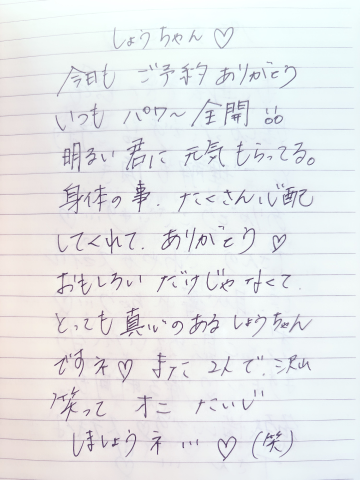 しょうちゃん♡
今日も ご予約 ありがとう
いつも パワ〜 全開
明るい 君に 元気 もらってる。
身体の事、たくさん心配
してくれて、ありがとう♡
おもしろい だけじゃ なくて、
とっても 真心のある しょうちゃん
ですネ♡ また 2人で、沢山
笑って オニ たいじ
しましょうネ…♡(笑)